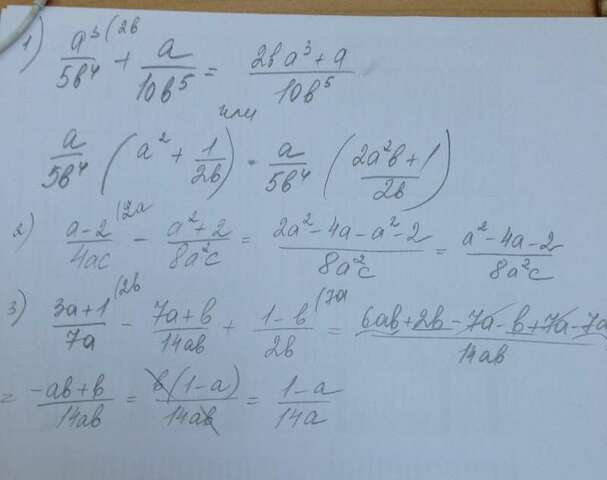 1) a³/5b⁴ (2b + a/10b⁵ = (2ba³ + a)/10b⁵
или
a/5b⁴ (a² + 1/2b) = a/5b⁴ ((2a²b + 1)/2b)
2) (a-2)/4ac (2a - (a²+2)/8a²c = (2a² - 4a - a² - 2)/8a²c = (a² - 4a - 2)/8a²c
3) (3a+1)/7a (2b - (7a+b)/14ab + (1-b)/2b (7a = (6ab + 2b - 7a - b + 7a - 7a)/14ab
= (-ab + b)/14ab = b(1-a)/14ab = (1-a)/14a